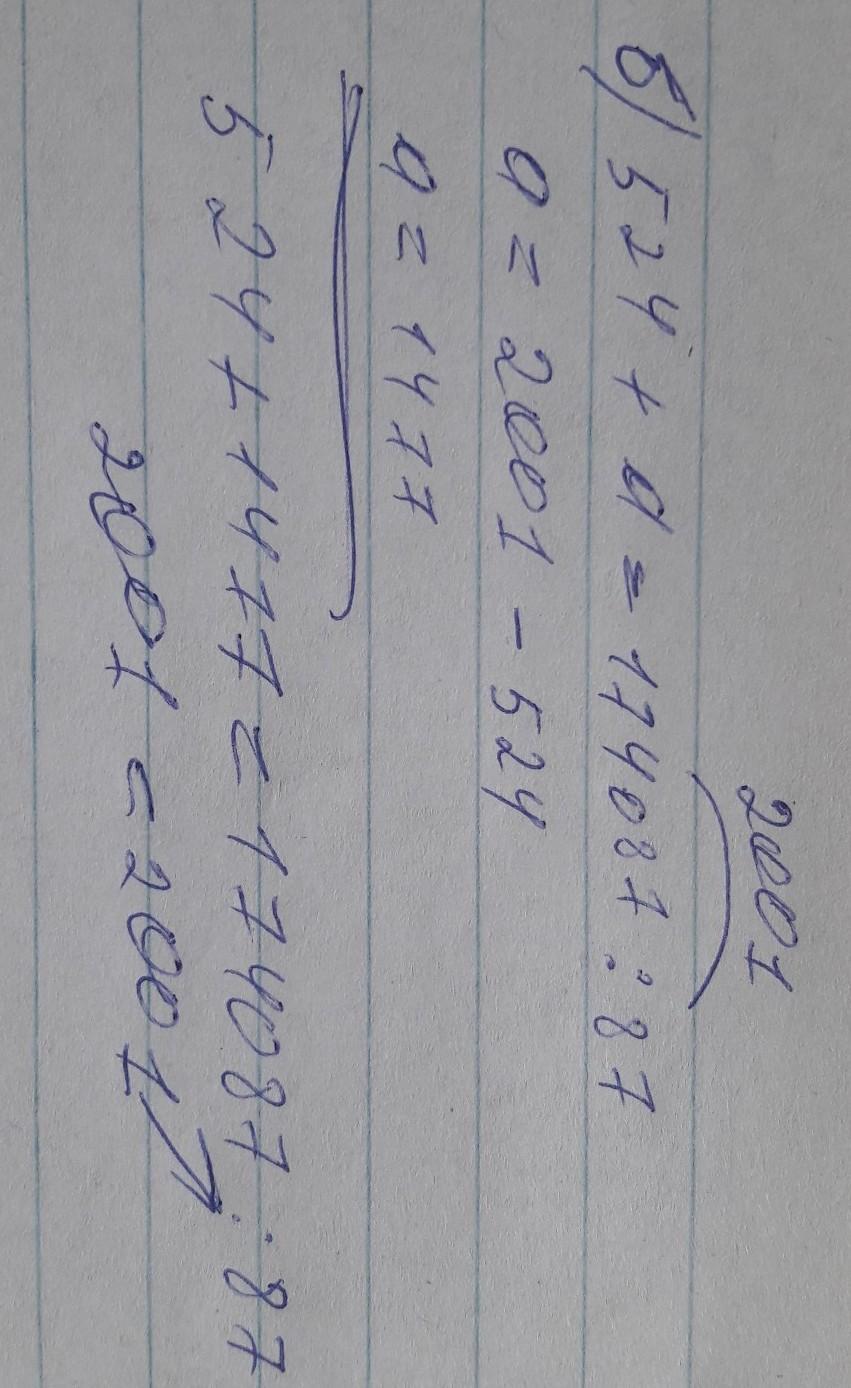 2001
б) 524 + a = 174087 : 87
a = 2001 - 524
a = 1477
524 + 1477 = 174087 : 87
2001 = 2001